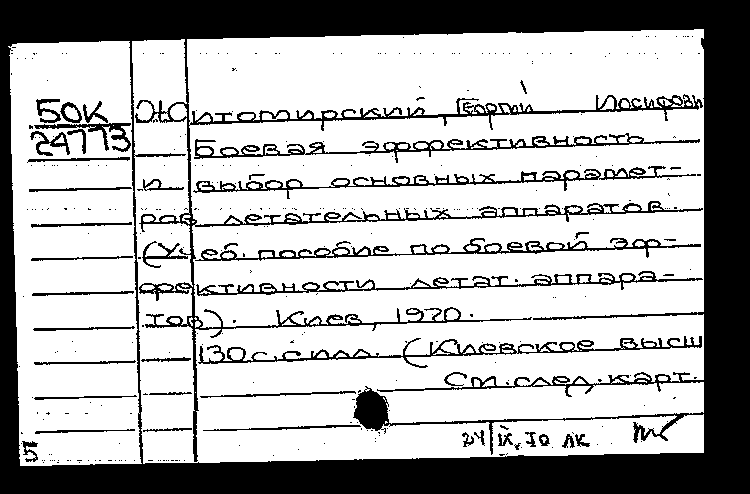 50К Житомирский, Георгий Иосифови
24773 Боевая эффективность
и выбор основных парамет-
ров летательных аппаратов.
(Учеб. пособие по боевой эф-
фективности летат. аппара-
тов). Киев, 1970.
130 с. с илл. (Киевское высш
См. след. карт.
24/IX.70 ЛК